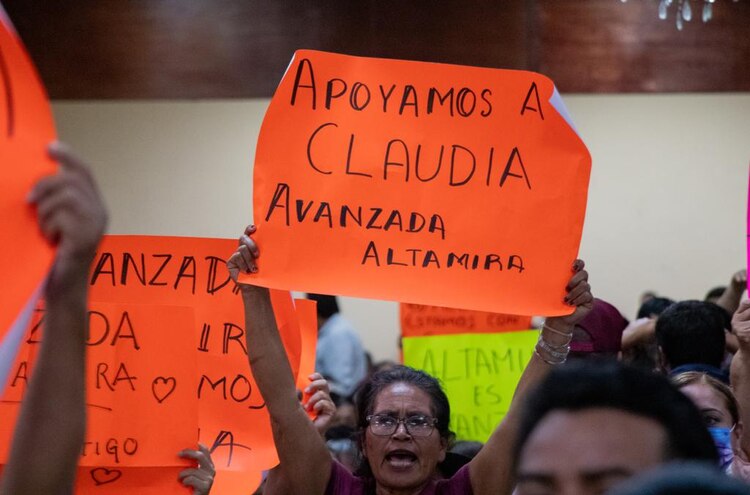 APOYAMOS A
CLAUDIA
AVANZADA
ALTAMIRA
ANZADA
IR
MOS
ESTAMOS CON
ALTAMI
ES